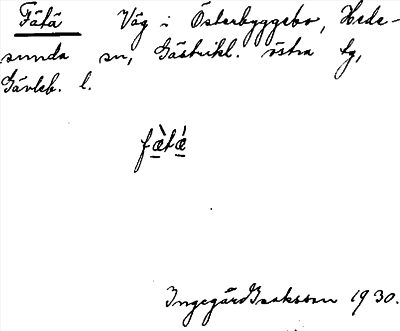 Fätä Väg i Österbyggebo, Hede-
sunda sn, Gästrikl. östra tg,
Gävleb. l.
fæ̀tǽ
Ingegärd Isaksson 1930.